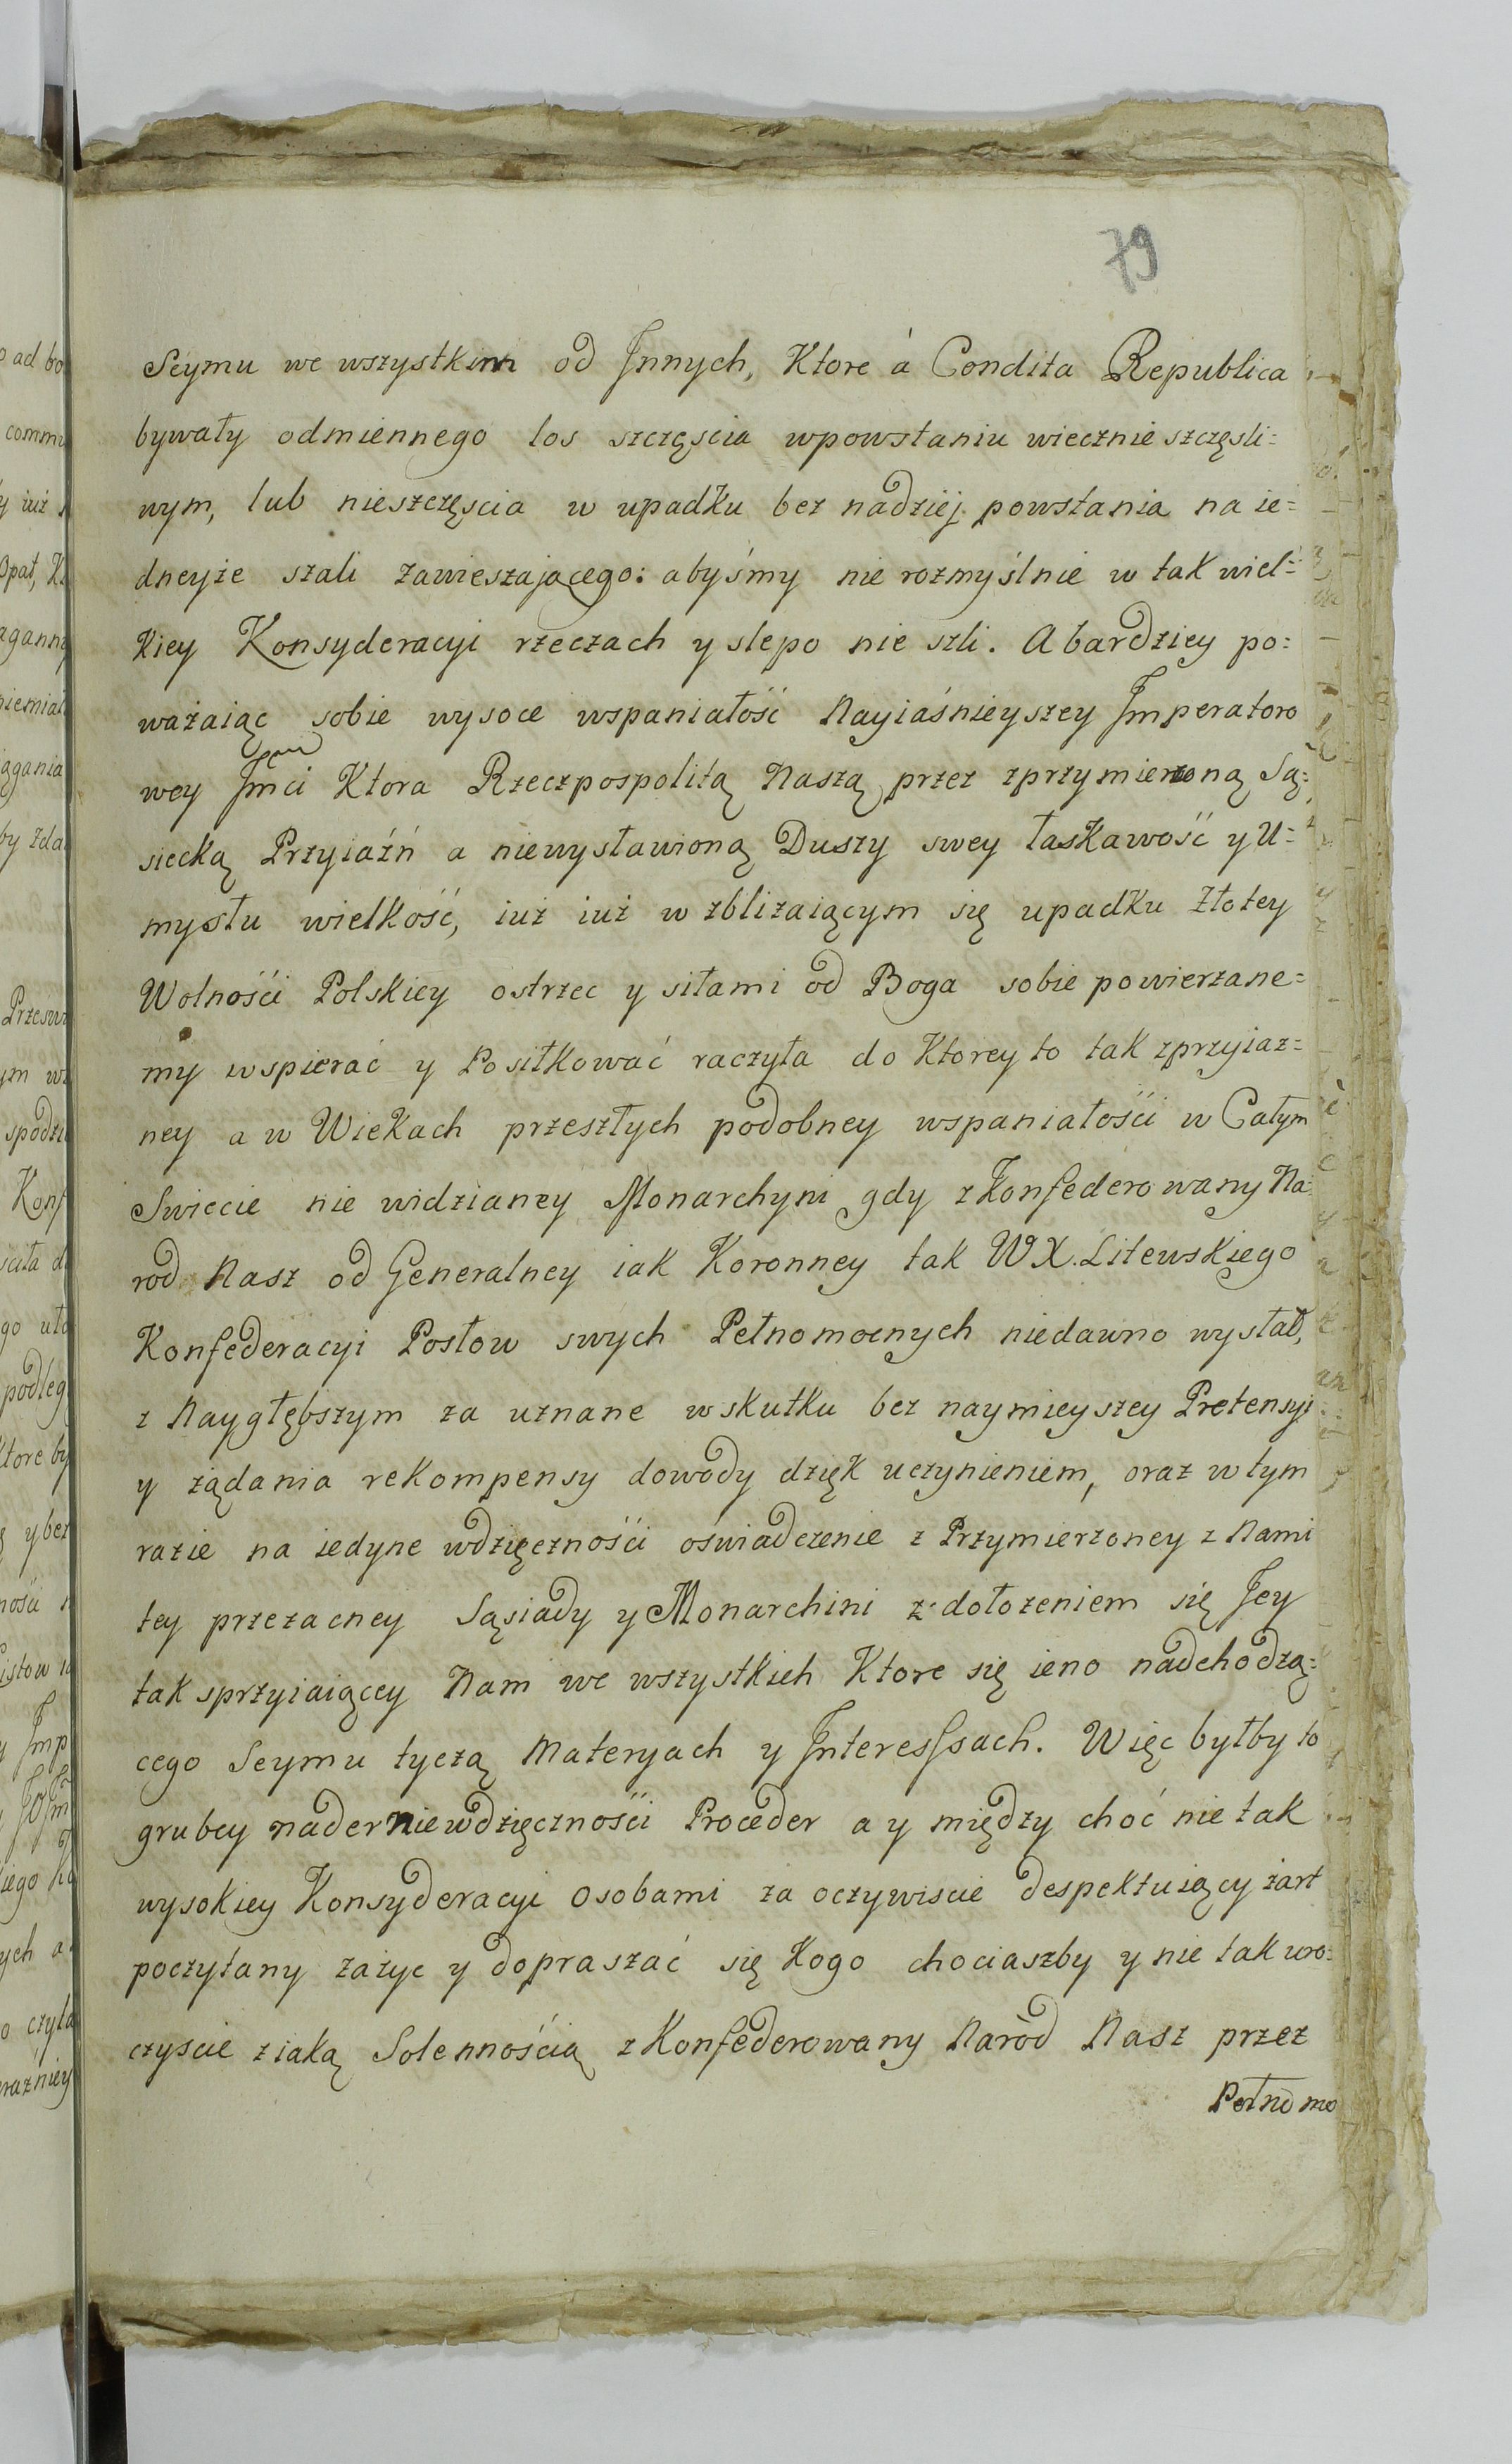 79
Seymu we wszystkim od Innych, Ktore á Condita Republica
bywały odmiennego los szczęscia wpowstaniu wiecznie szczęsli=
wym, lub nieszczęscia w upadku bez nadziej powstania na ie=
dneyże szali zawieszającego: abyśmy nie rozmyślnie w tak wiel=
kiey Konsyderacyi rzeczach y slepo nie szli. A bardziey po=
ważaiąc sobie wysoce wspaniałość Nayiaśnieyszey Imperatoro
wey Jmci Ktora Rzeczpospolitą Naszą przez zprzymierzoną Są=
siecką Przyiaźń a niewysławioną Duszy swey łaskawość y U=
mysłu wielkość, iuż iuż w zbliżaiącym się upadku Złotey
Wolnośći Polskiey ostrzec y siłami od Boga sobie powierzane=
my wspierać y Posiłkować raczyła do Ktorey to tak zprzyiaz=
ney a w Wiekach przeszłych podobney wspaniałośći w Całym
Swiecie nie widzianey Monarchyni gdy zKonfederowany Na=
rod Nasz od Generalney iak Koronney tak W X. Litewskiego
Konfederacyi Posłow swych Pełnomocnych niedawno wysłał,
z Naygłębszym za uznane wskutku bez naymieyszey Pretensyi
y żądania rekompensy dowody dzięk uczynieniem, oraz w tym
razie na iedyne wdzięcznośći oświadczenie z Przymierzoney z Nami
tey przezacney Sąsiady y Monarchini z dołożeniem się Jey
tak sprzyiaiącey Nam we wszystkich Ktore się ieno nadchodzą=
cego Seymu tyczą Materyach y Interessach. Więc byłby to
grubey nader niewdzięcznośći Proceder a y między choć nie tak
wysokiey Konsyderacyi Osobami za oczywiscie despektuiący żart
poczytany zażyc y dopraszać się Kogo chociaszby y nie tak uro=
czyscie z iaką Solennośćią zKonfederowany Naròd Nasz przez
Pełnomo